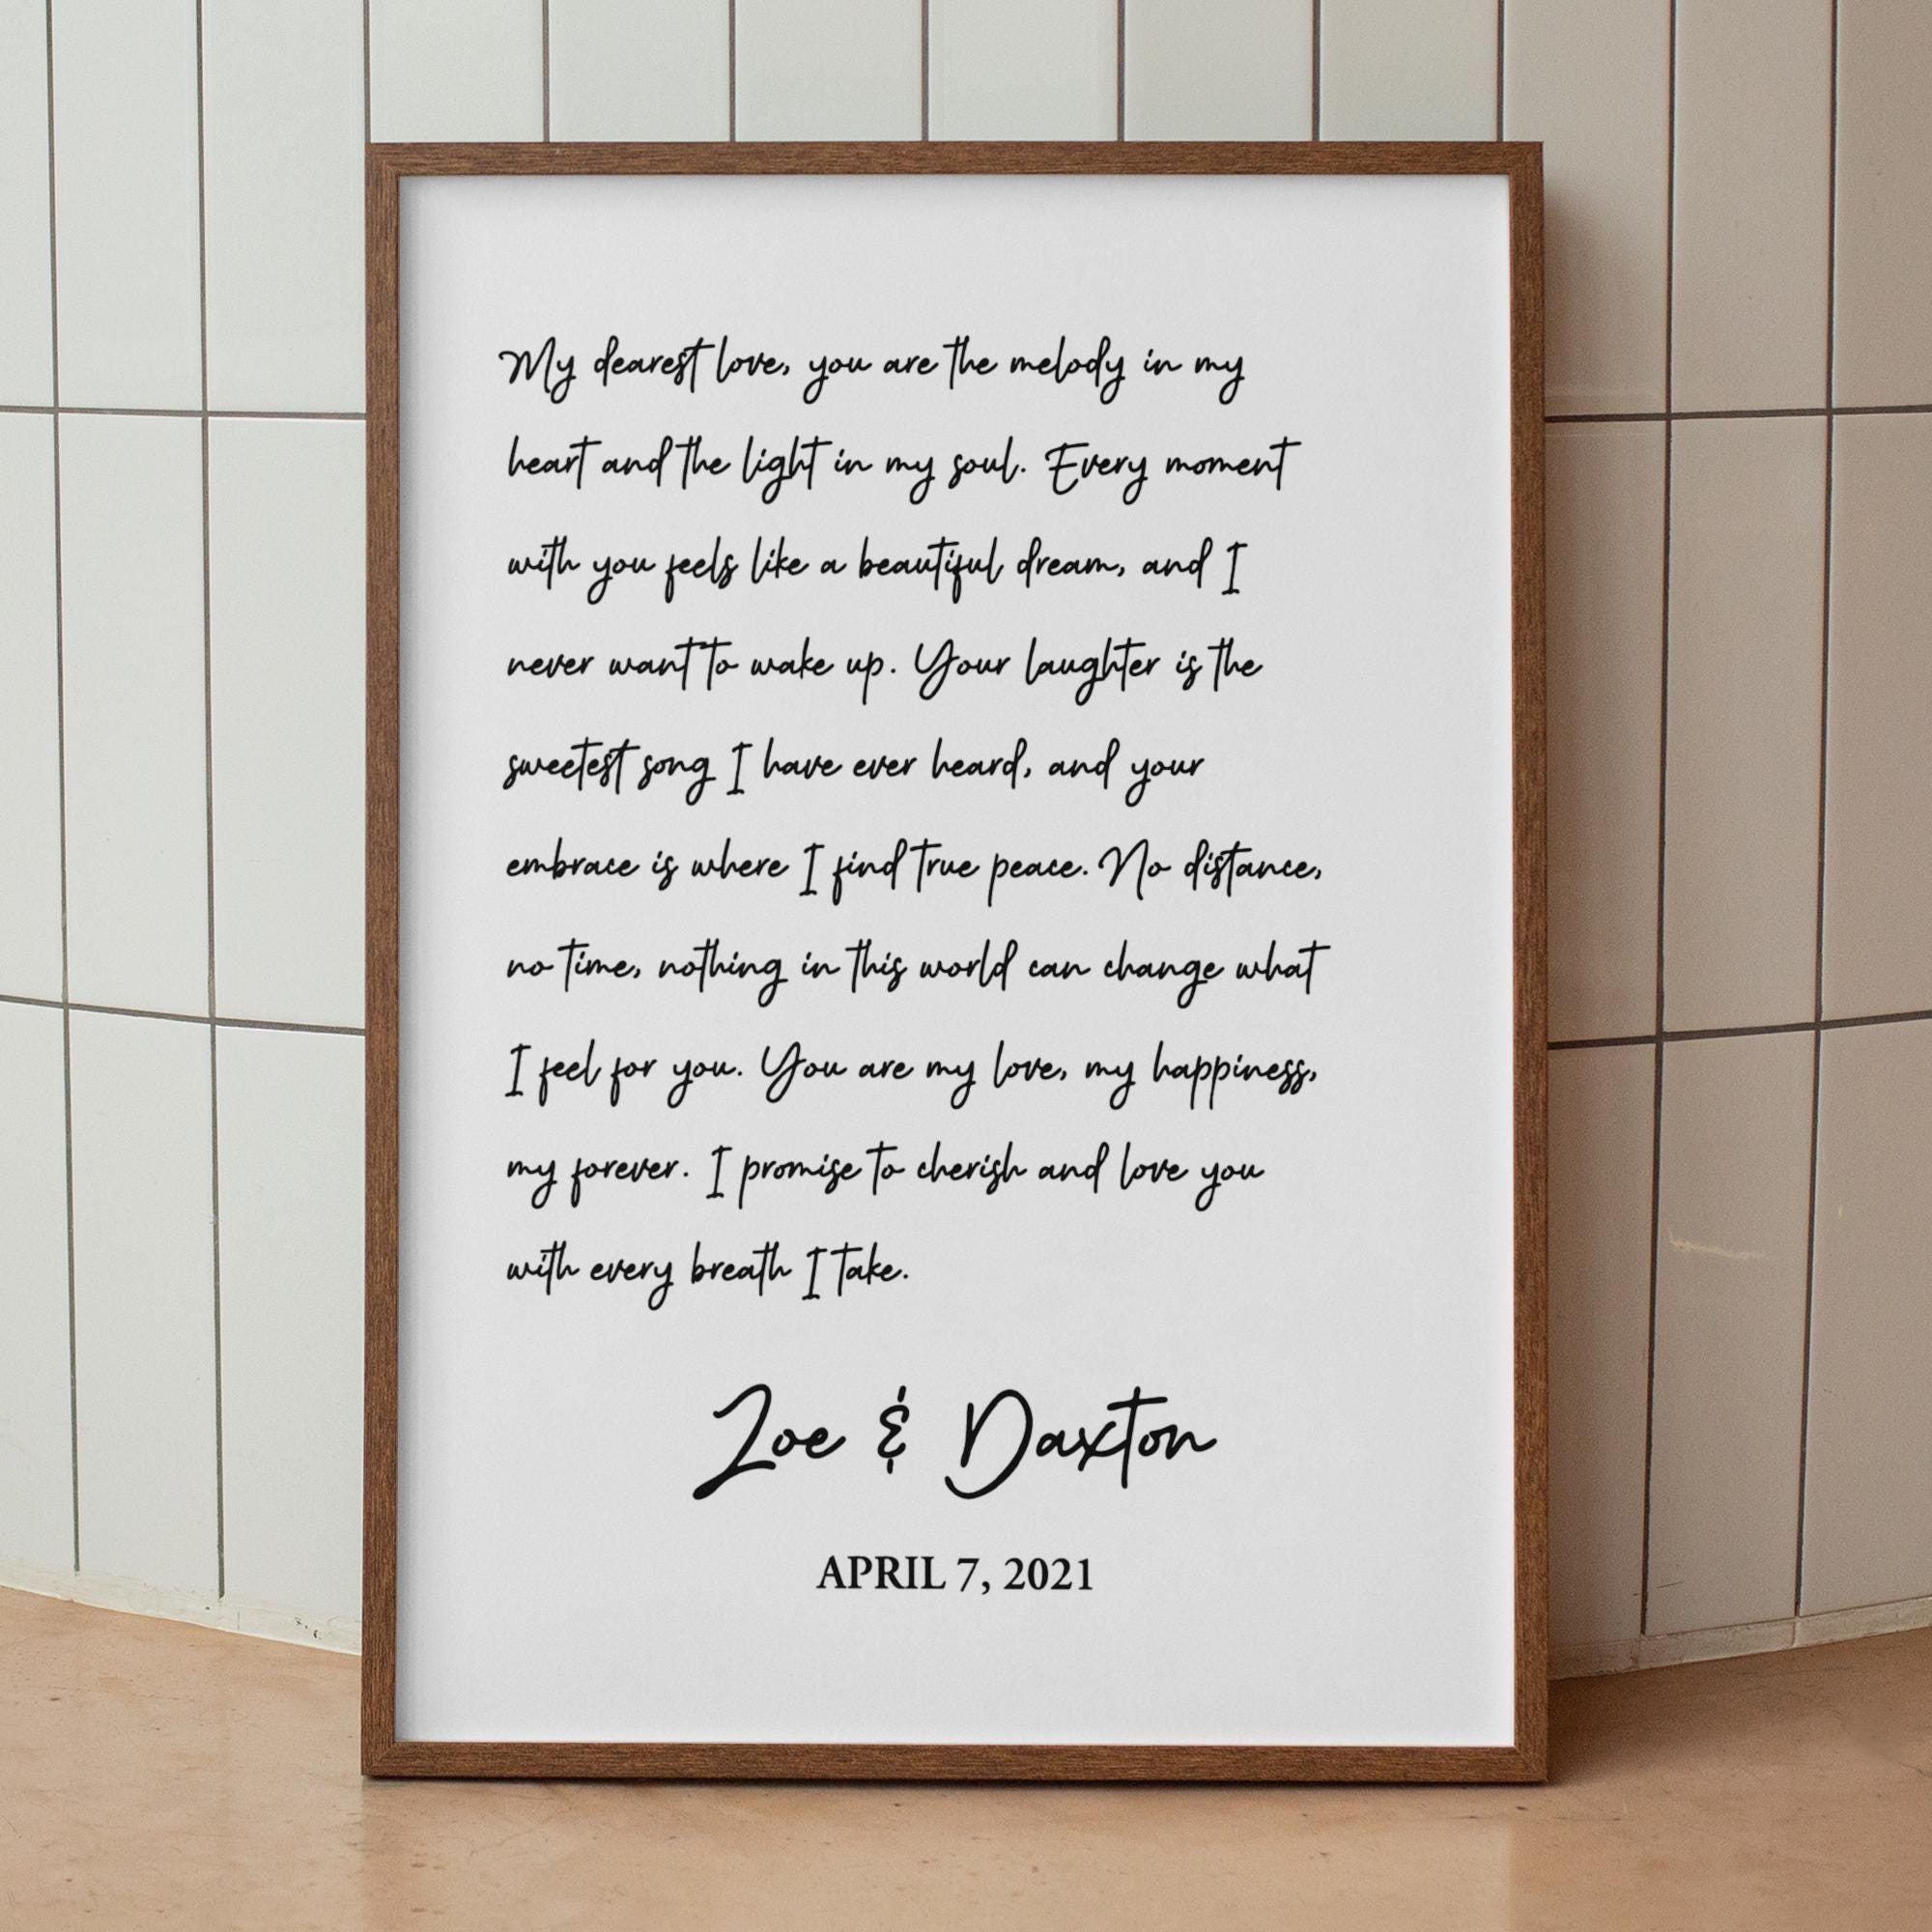 My dearest love, you are the melody in my
heart and the light in my soul. Every moment
with you feels like a beautiful dream, and I
never want to wake up. Your laughter is the
sweetest song I have ever heard, and your
embrace is where I find true peace. No distance,
no time, nothing in this world can change what
I feel for you. You are my love, my happiness,
my forever. I promise to cherish and love you
with every breath I take.
Zoe & Daxton
APRIL 7, 2021